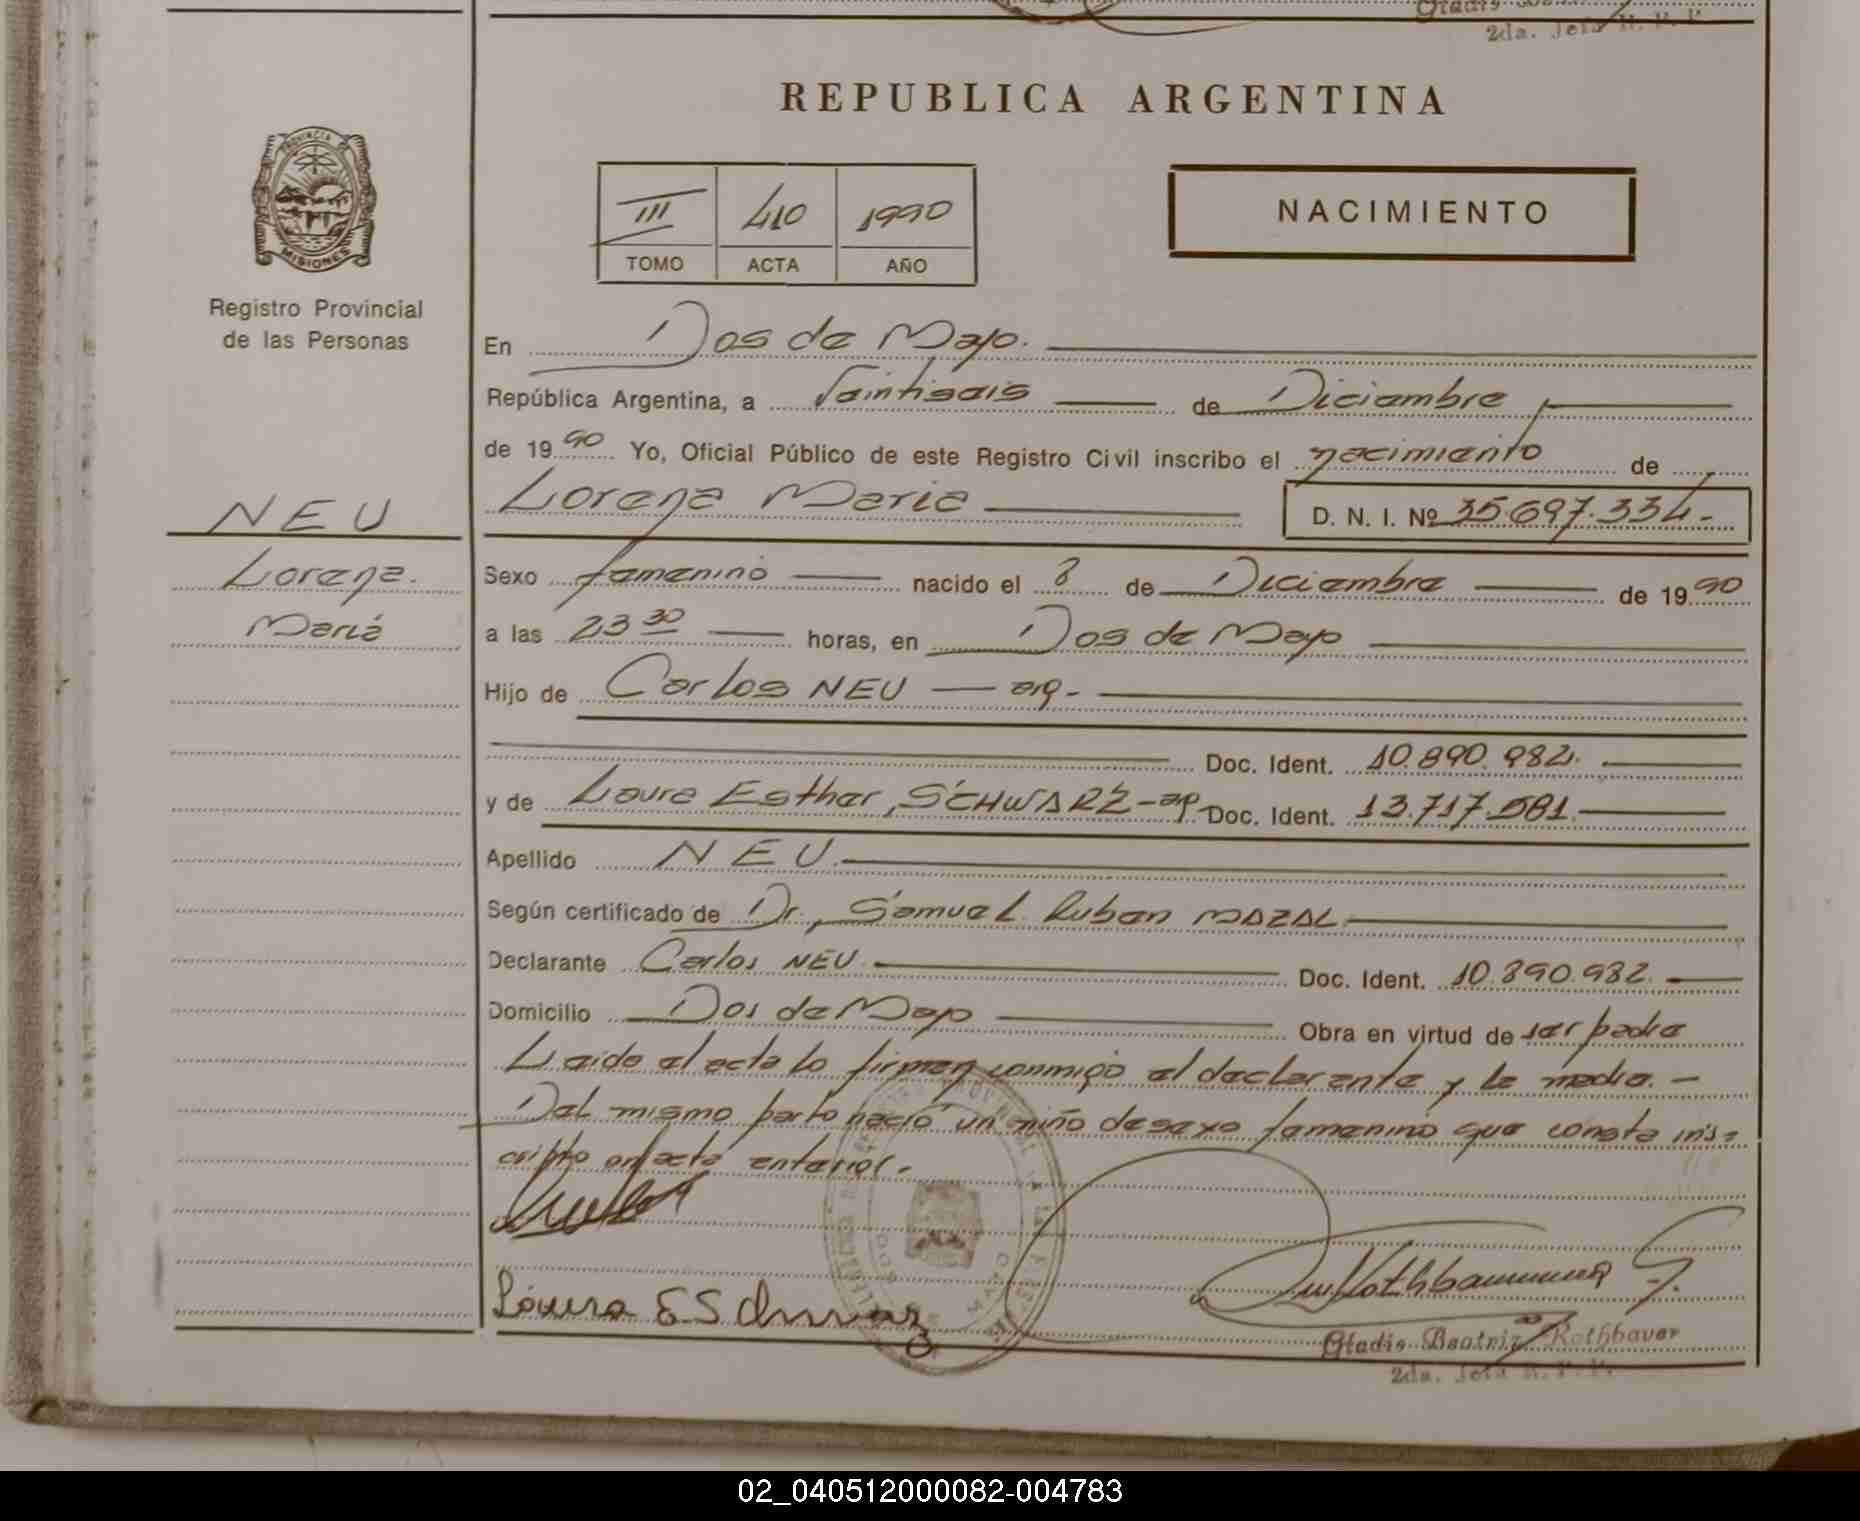 Gladis
2da. Jefa R. P. P.
REPUBLICA ARGENTINA
PROVINCIA DE
MISIONES
Registro Provincial
de las Personas
III 410 1990
TOMO ACTA AÑO
NACIMIENTO
En Dos de Mayo.
República Argentina, a Veintiseis de Diciembre
de 1990 Yo, Oficial Público de este Registro Civil inscribo el nacimiento de
NEU
Lorena María
D. N. I. Nº 35.697.334.-
Lorena.
María
Sexo femenino nacido el 8 de Diciembre de 1990
a las 23 30 horas, en Dos de Mayo
Hijo de Carlos NEU — arg.-
Doc. Ident. 10.890.982.
y de Laura Esther, SCHWARZ - arg- Doc. Ident. 13.717.581.
Apellido NEU.
Según certificado de Dr. Samuel Ruben MAZAL
Declarante Carlos NEU. Doc. Ident. 10.890.982.
Domicilio Dos de Mayo Obra en virtud de ser padre
Leida el acta lo firman conmigo el declarante y la madre. -
Del mismo parto nació un niño de sexo femenino que consta ins=
cripto en acta anterior.
Laura E Schwarz
Gladis Beatriz Rothbaver
2da. Jefa R. P. P.
02_040512000082-004783